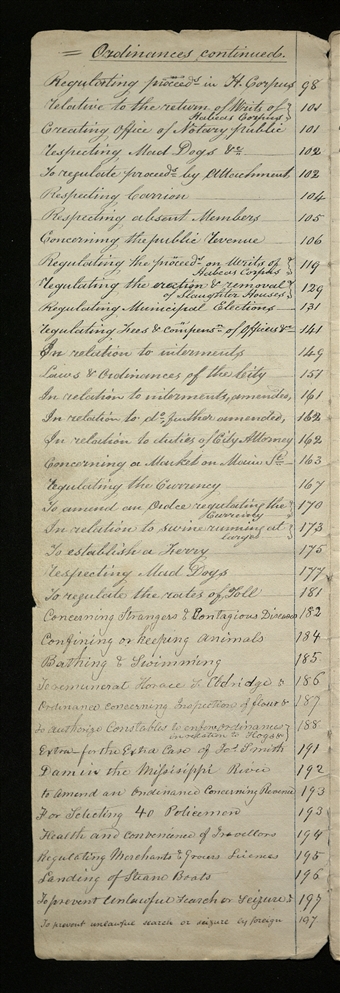 = Ordinances continued.
Regulating proceed.s in H. Corpus 98
relative to the return of Writs of
Habeas Corpus } 101
Creating Office of Notary public 101
respecting Mad Dogs &c 102
To regulate proceed.s by Attachment 102
Respecting Carrion 104
Respecting absent Members 105
Concerning the public revenue 106
Regulating the proceed.s on Writs of
Habeas Corpus } 119
regulating the erection & removal
of Slaughter Houses } 129
Regulating Municipal Elections 131
regulating Fees & compens.n of Officers &c 141
In relation to interments 149
Laws & Ordinances of the City 151
In relation to interments, amended, 161
In relation to do. further amended, 162
In relation to duties of City Attorney 162
Concerning a Market on Main St. 163
regulating the Currency 167
To amend an Ordce regulating the
Currency } 170
In relation to swine running at
large } 173
To establish a Ferry 175
respecting Mad Dogs 177
To regulate the rates of Toll 181
Concerning Strangers & Contagious Diseases 182
Confining or keeping animals 184
Bathing & Swimming 185
To remunerat Horace Aldridge & 186
Ordinance concerning Inspection of flour & 187
To authorize Constables to enforce ordinances
in relation to Hogs & } 188
Extra for the Extra Case of Jos. Smith 191
Dam in the Missisippi River 192
to Amend an Ordinance Concerning Revenue 193
For Selecting 40 Policemen 193
Health and Convenience of Travellors 194
Regulating Merchants & Grocers Licenses 195
Landing of Steam Boats 196
To prevent Unlawful Search or Seizure & 197
To prevent unlawful search or seizure by foreign 197